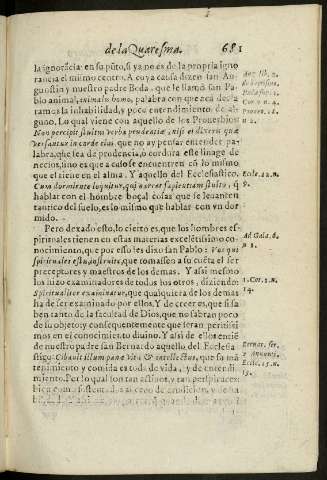 de la Quaresma. 681
la ignorãcia en su pũto, si ya no es de la propria igno
rancia el mismo centro. A cuya causa dizen san Au
gustin y nuestro padre Beda, que le llamò san Pa
blo animal, animalis homo, palabra con que acà decla
ramos la inhabilidad, y poco entendimiento de al-
guno. Lo qual viene con aquello de los Prouerbios
Non percipit stultus verba prudentiæ, nisi ei dixeris quæ
versantur in corde eius, que no ay pensar entender pa-
labra, que sea de prudencia, ò cordura esse linage de
necios, sino es que a caso se encuentren cõ lo mismo
que el tiene en el alma. Y aquello del Ecclesiastico.
Cum dormiente loquitur, qui narrat sapientiam stulto, q̃
hablar con el hombre boçal cosas que se leuanten
tantico del suelo, es lo mismo que hablar con vn dor
mido.
Pero dexado esto, lo cierto es, que los hombres es
pirituales tienen en estas materias excelẽtissimo co-
nocimiento, que por esso les dixo san Pablo: Vos qui
spirituales estis instruite, que tomassen a su cueta el ser
preceptures y maestros de los demas. Y assi mesmo
los hizo examinadores de todos los otros, diziendo:
Spiritualiter examinatur, que qualquiera de los demas
ha de ser examinado por ellos. Y de creer es, que si sa
ben tanto de la facultad de Dios, que no sabran poco
de su objeto, y consequentemente que seran peritissi
mos en el conocimiento diuino. Y assi de ellos entiẽ
de nuestro padre san Bernardo aquello del Ecclesia
stico: Cibauit illum pane vitæ & intellectus, que su mã
tenimiento y comida es toda de vida, y de entendi-
miento. Por lo qual son tan actiuos, y tan perspicaces
Aug. lib. 2.
1. Cor. 2. n.
Prouer.
n. 2.
Eccle. 22. n.
9.
Ad Gala. 6.
n. 1.
1. Cor. 2. n.
14.
Bernar. ser.
Eccle. 15. n.